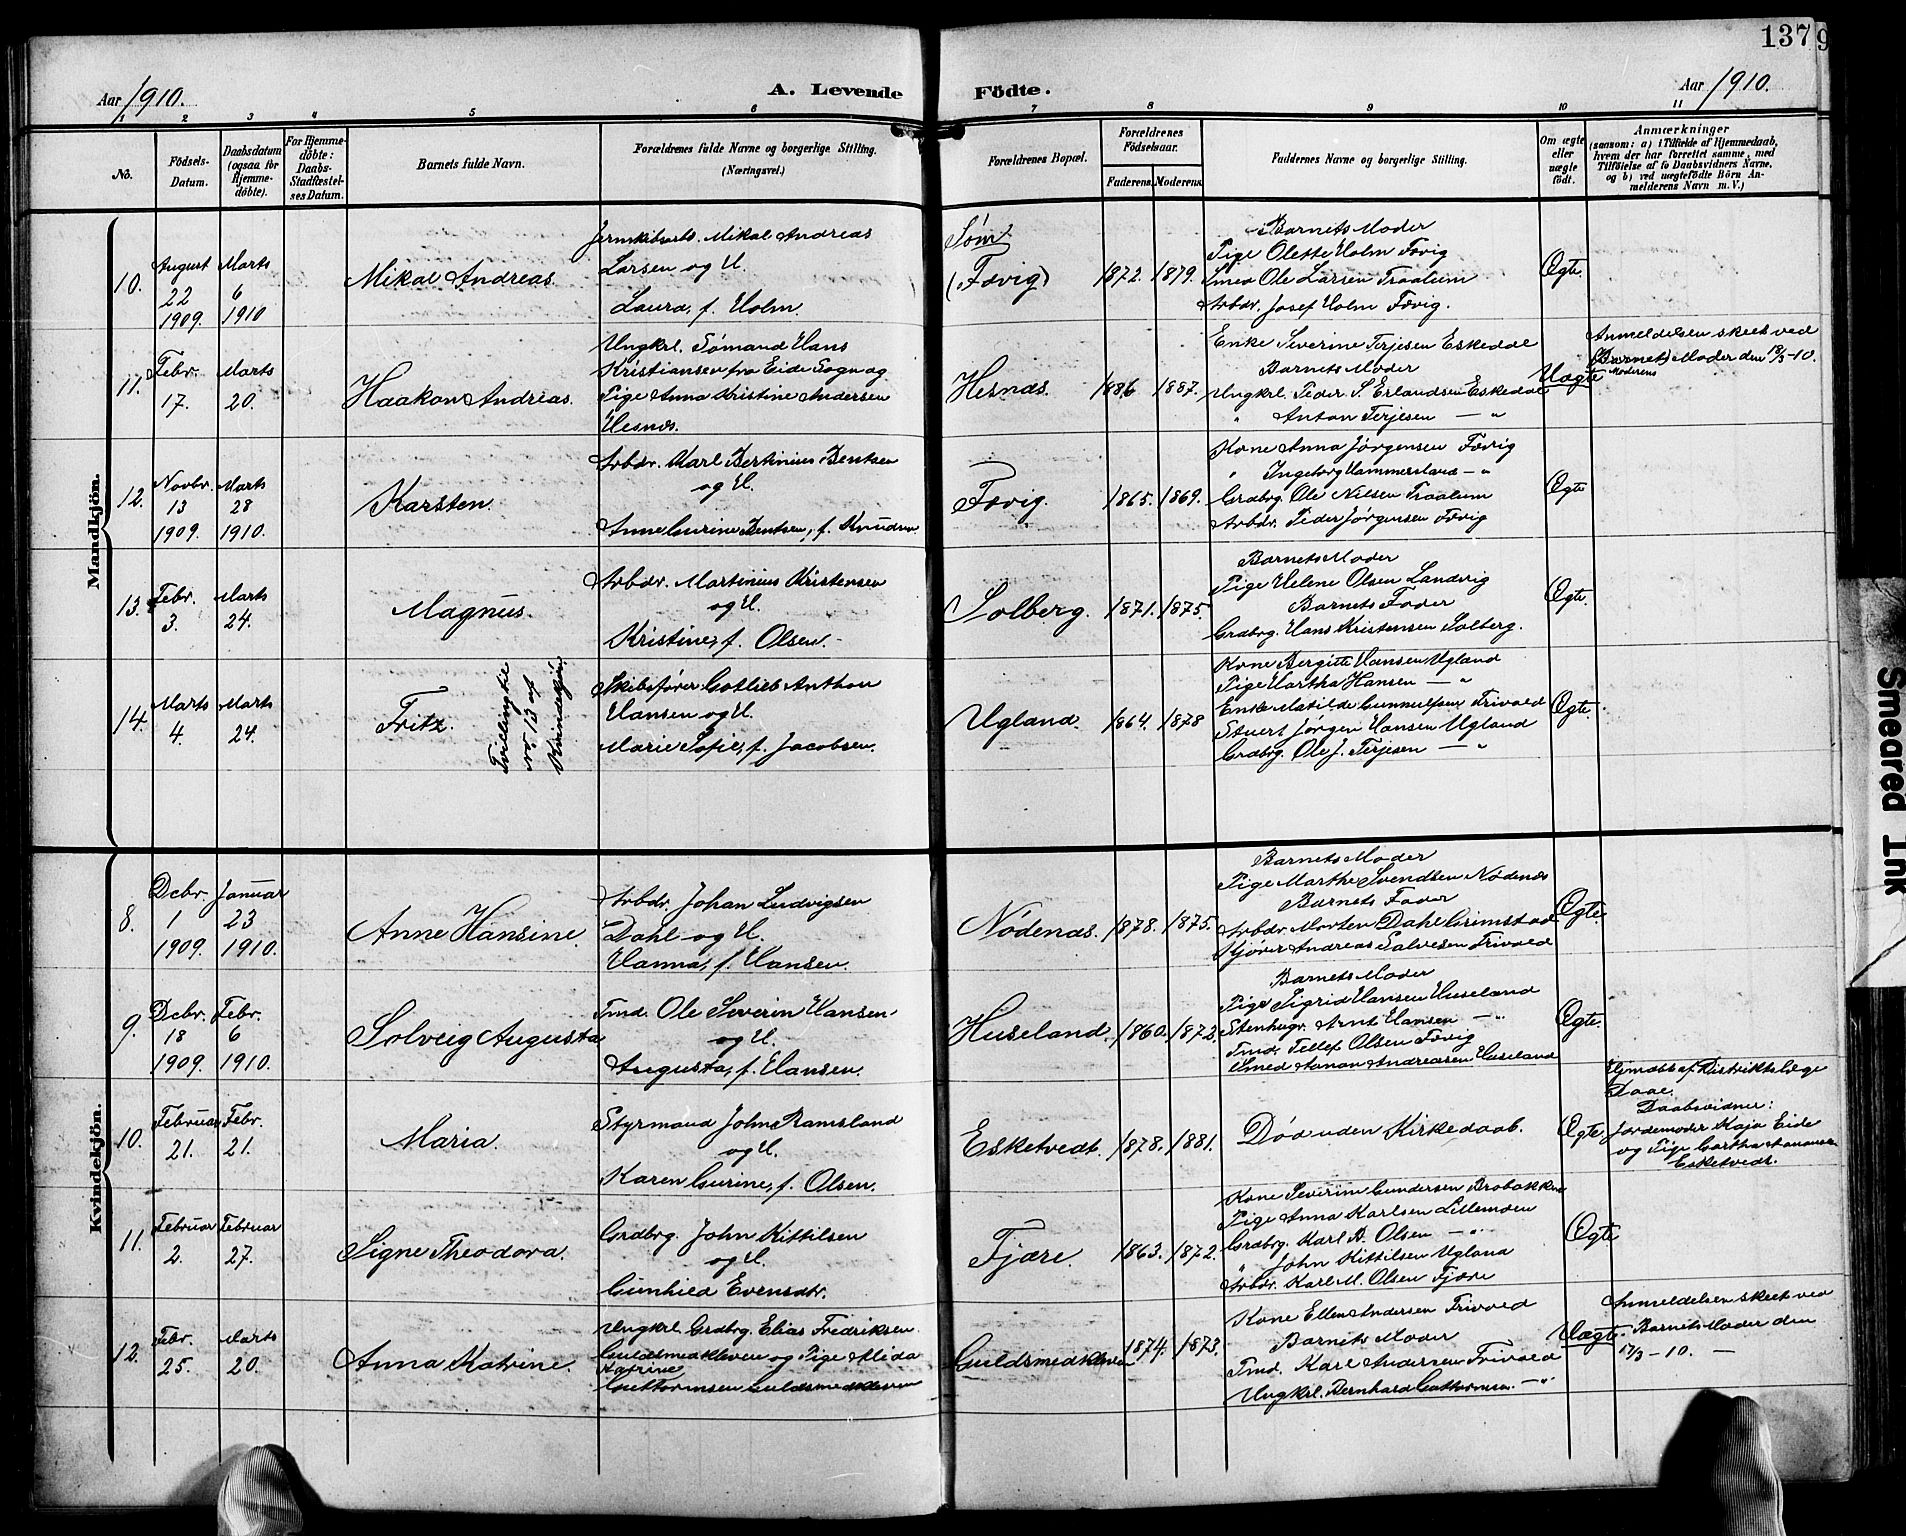 137
9
Aar 1910.
A. Levende Födte.
Aar 1910.
1 2 3 4 5 6 7 8 9 10 11
No.
Födsels-
Datum.
Daabsdatum
(ogsaa för
Hjemme-
döbte).
For Hjemme-
döbte:
Daabs-
Stadfæstel-
ses Datum.
Barnets fulde Navn.
Forældrenes fulde Navne og borgerlige Stilling.
(Næringsvei.)
Forældrenes Bopæl.
Forældrenes
Födselsaar.
Faderens. Moderens.
Faddernes Navne og borgerlige Stilling.
Om ægte
eller
uægte
födt.
Anmærkninger
(saasom: a) i Tilfælde af Hjemmedaab,
hvem der har forrettet samme, med
Tilföielse af to Daabsvidners Navne,
og b) ved uægtefödte Börn An-
melderens Navn m. V.)
Mandkjön.
10.
August
22
1909.
Marts
6
1910
Mikal Andreas
Mikal Andreas
Larsen og H.
Laura, f. Holm.
Søm
(Fævig)
1872. 1879.
Barnets Moder
Pige Olette Holm Fævig
Smed Ole Larsen Traalum
Arbdr. Josef Holm Fævig.
Ægte.
11.
Febr.
17.
Marts
20.
Haakon Andreas.
Ungkrl. Sømand Hans
Kristiansen fra Eide Sogn og
Pige Anna Kristine Andersen
Hesnæs.
Hesnæs.
1886 1887.
Enke Severine Terjesen Eskedal
Barnets Moder
Ungkrl. Peder S. Erlandsen Eskedal
" Anton Terjesen — "
Uægte
Anmeldelsen skeet ved
(Barnet) Moder den 18/3-10.
Moderens
12.
Novbr.
13
1909.
Marts
28
1910.
Karsten.
Arbdr. Karl Bertinius Bentsen
og H.
Anne Gurine Bentsen, f. Knudsen
Fævig.
1865. 1869.
Kone Anna Jørgensen Fævig
" Ingeborg Hammersland — "
Grdbrg. Ole Nilsen Traalum
Arbdr. Peder Jørgensen Fævig
Ægte
13.
Febr.
3.
Marts
24.
Magnus.
Arbdr. Martinius Kristensen
og H.
Kristine, f. Olsen.
Solberg.
1871. 1875.
Barnets Moder
Pige Helene Olsen Landvig
Barnets Fader
Grdbrg. Hans Kristensen Solberg.
Ægte.
14.
Marts
4.
Marts
24.
Fritz.
Tvilling til
No. 13 af
Kvindekjön.
Skibsfører Gotlieb Anthon
Hansen og H.
Marie Sofie, f. Jacobsen.
Ugland.
1864. 1878
Kone Bergitte Hansen Ugland
Pige Martha Hansen — "
Enke Matilde Gunnulfsen Trivold
Stuert Jørgen Hansen Ugland
Grdbrg. Ole J. Terjesen — "
Ægte.
Kvindekjön.
8.
Dcbr.
1
1909.
Januar
23
1910.
Anne Hansine.
Arbdr. Johan Ludvigsen
Dahl og H.
Hanna, f. Hansen.
Nødenæs.
1878. 1875.
Barnets Moder
Pige Marthe Svendsen Nødenæs
Barnets Fader
Arbdr. Morten Dahl Grimstad
Andreas Salvesen Trivold
Ægte.
9.
Dcbr.
18
1909.
Febr.
6
1910.
Solveig Augusta
Tmd. Ole Severin Hansen
og H.
Augusta, f. Hansen.
Huseland.
1860. 1872.
Barnets Moder
Pige Sigrid Hansen Huseland
Stenhugr. Arnt Hansen — "
Tmd. Tellef Olsen Fævig
Smed Aanon Andreasen Huseland
Ægte.
10.
Februar
21.
Febr.
21.
Maria.
Styrmand John Ramsland
og H.
Karen Gurine, f. Olsen.
Esketvedt.
1878. 1881.
Død uden Kirkedaab.
Ægte
Hjmdøbt af Distriktslæge
Daae.
Daabsvidner:
Jordemoder Kaja Eide
og Pige Gartha Aanonsen
Esketvedt.
11.
Februar
2.
Februar
27.
Signe Theodora.
Grdbrg. John Kittilsen
og H.
Gunhild Evensdtr.
Fjære.
1863. 1872.
Kone Severine Gundersen Brobakken
Pige Anna Karlsen Lillemoen
Grdbrg. Karl A. Olsen — "
" John Kittilsen Ugland
Arbdr. Karl M. Olsen Fjære
Ægte
12.
Febr.
25.
Marts
20.
Anna Katrine.
Ungkrl. Grdbrg. Elias Fredriksen
Guldsmedkleven og Pige Alida
Katrine
Guttormsen Guldsmedkleven
Guldsmedkleven
1874. 1873.
Kone Ellen Andersen Trivold
Barnets Moder
Tmd. Karl Andersen Trivold
Ungkrl. Bernhard Guttormsen — "
Uægte.
Anmeldelsen skeet ved
Barnets Moder den
17/3-10. —
Smeared Ink